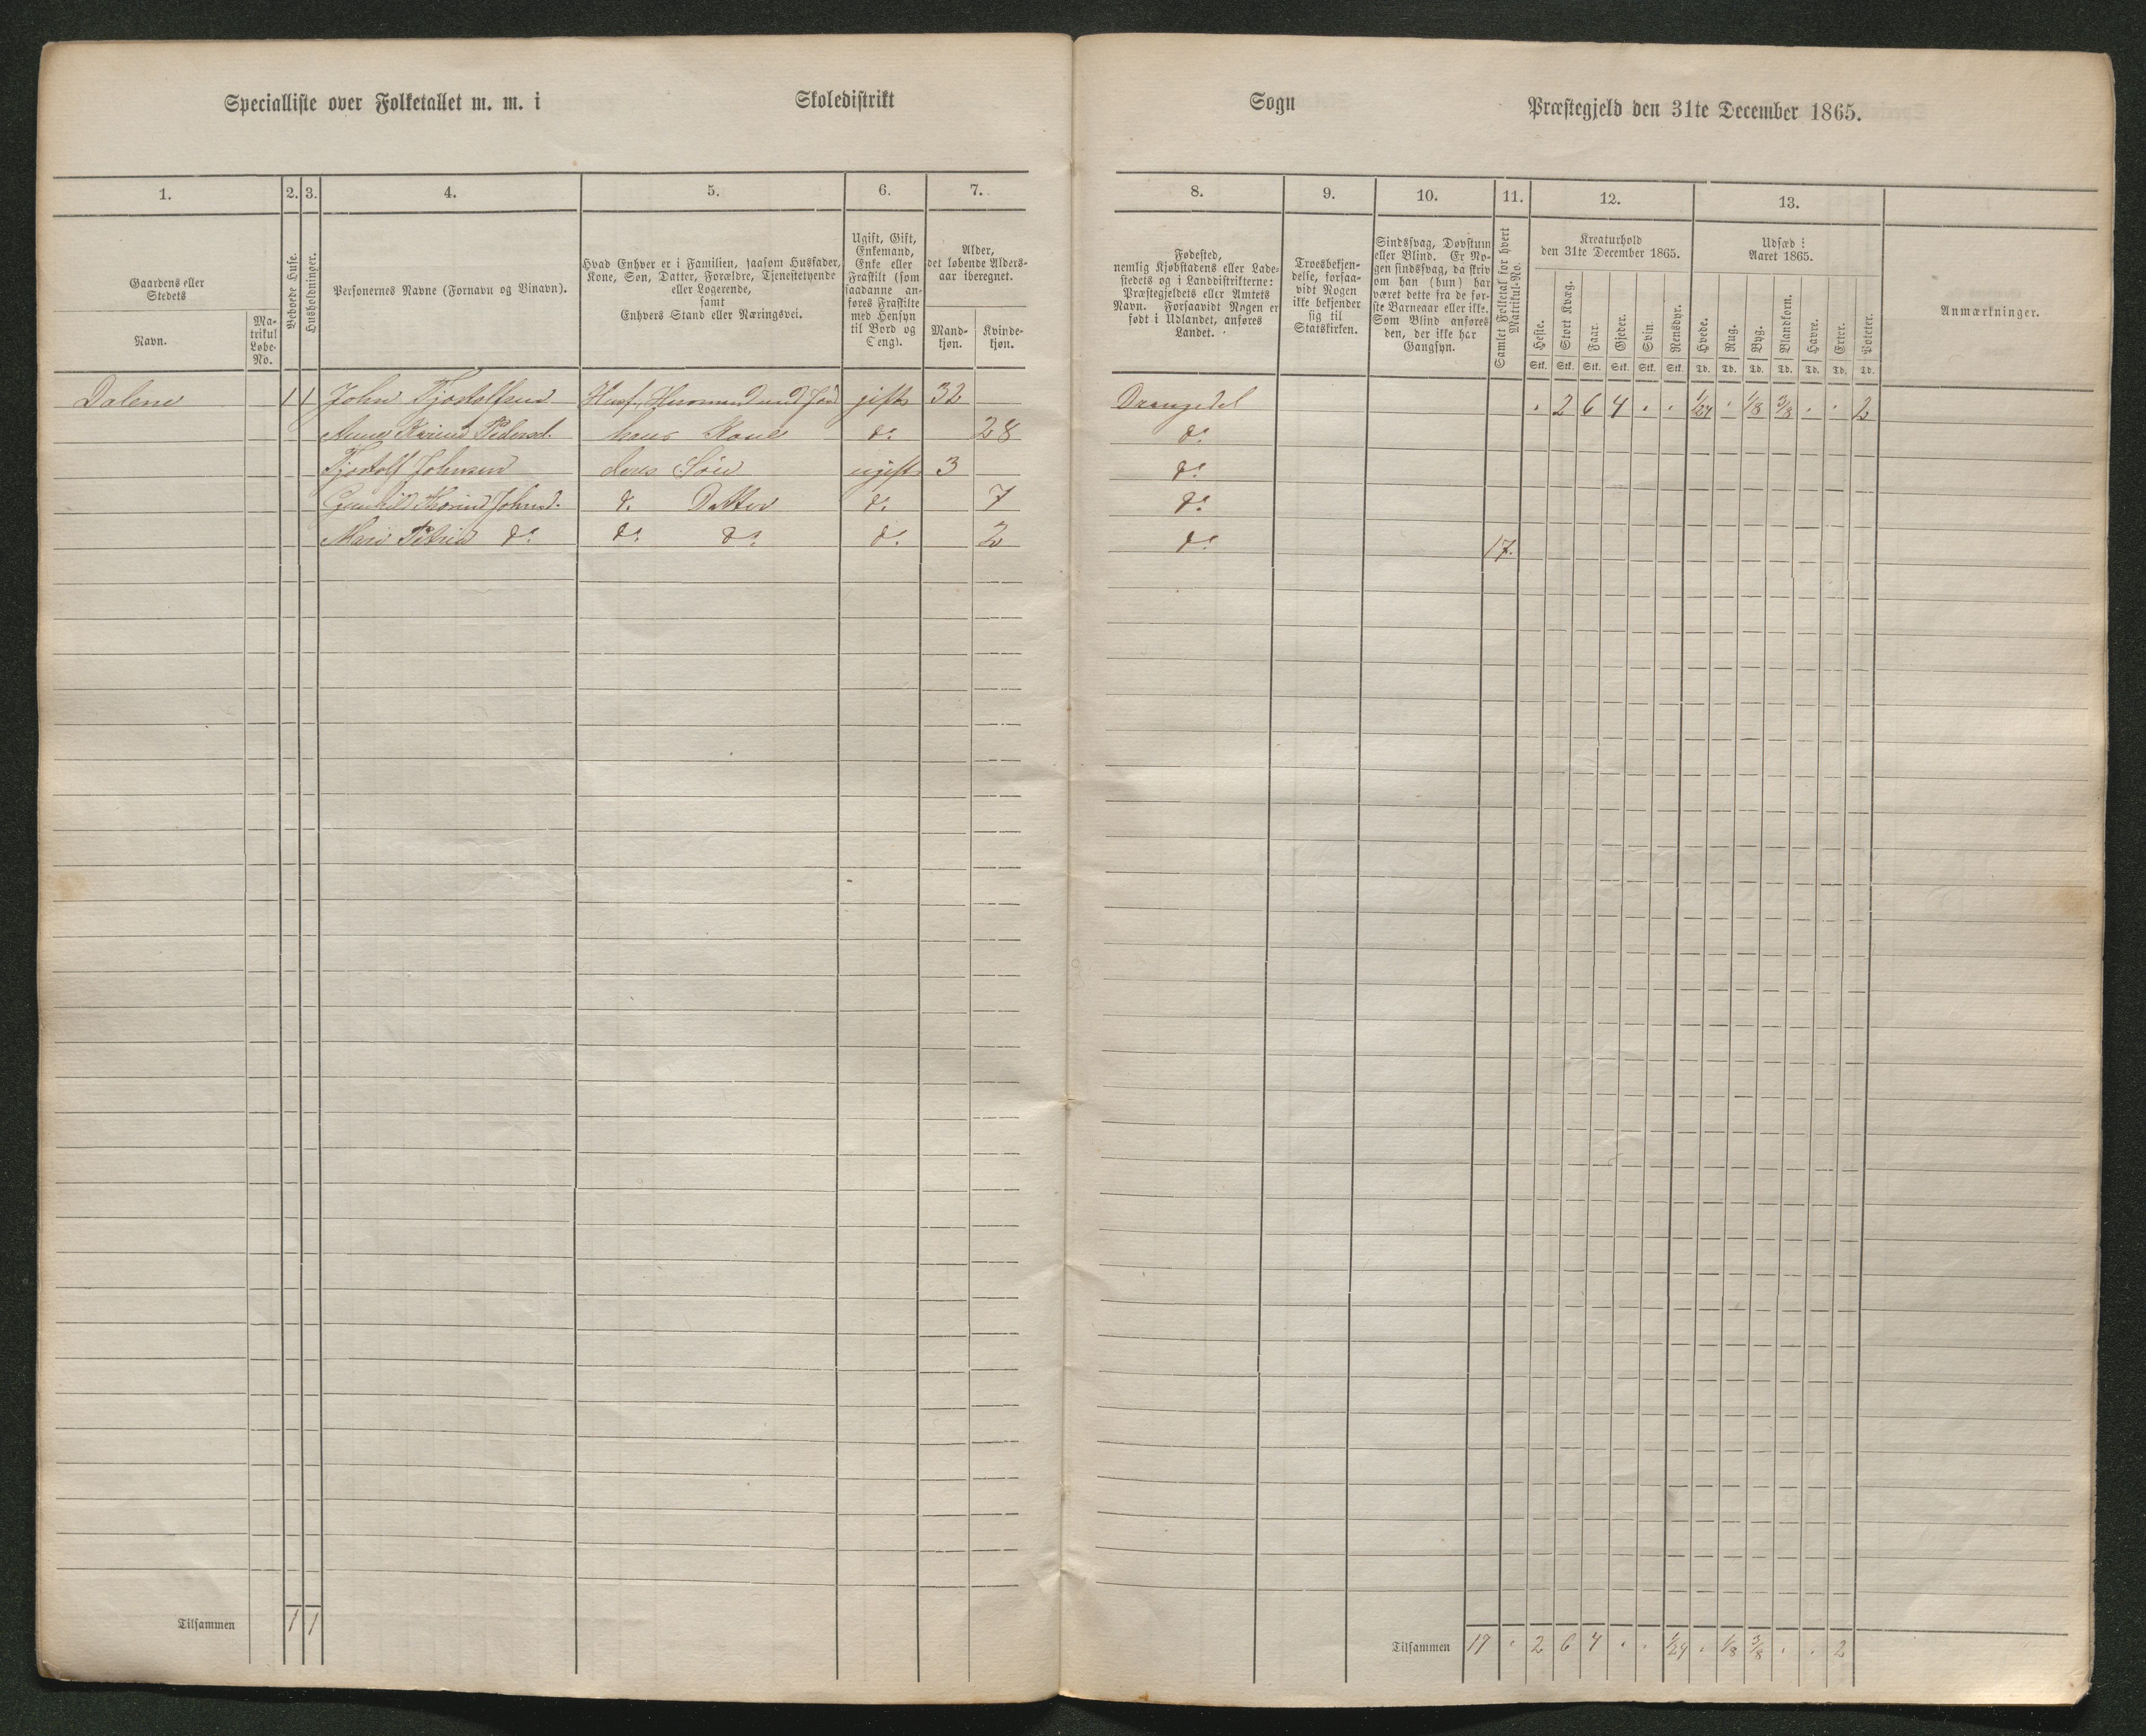 Specialliste over Folketallet m. m. i Skoledistrikt Sogn Præstegjeld den 31te December 1865.
1. 2. 3. 4. 5. 6. 7. 8. 9. 10. 11. 12. 13.
Gaardens eller Stedets
Navn.
Matrikul Løbe-No.
Beboede Huse.
Husholdninger.
Personernes Navne (Fornavn og Binavn).
Hvad Enhver er i Familien, saasom Husfader, Kone, Søn, Datter, Forældre, Tjenestetyende eller Logerende, samt Enhvers Stand eller Næringsvei.
Ugift, Gift, Enkemand, Enke eller Fraskilt (som saadanne anføres Fraskilte med Hensyn til Bord og Seng).
Alder, det løbende Aldersaar iberegnet.
Mandkjøn.
Kvindekjøn.
Fødested, nemlig Kjøbstadens eller Ladestedets og i Landdistrikterne: Præstegjeldets eller Amtets Navn. Forsaavidt Nogen er født i Udlandet, anføres Landet.
Troesbekjendelse, forsaavidt Nogen ikke bekjender sig til Statskirken.
Sindssvag, Døvstum eller Blind. Er Nogen sindssvag, da skriv om han (hun) har været dette fra de første Barneaar eller ikke. Som Blind anføres den, der ikke har Gangsyn.
Samlet Folketal for hvert Matrikul-No.
Kreaturhold den 31te December 1865.
Heste. Stort Kvæg. Faar. Gjeder. Svin. Rensdyr.
Stk. Stk. Stk. Stk. Stk. Stk.
Udsæd i Aaret 1865.
Hvede. Rug. Byg. Blandkorn. Havre. Erter. Poteter.
Td. Td. Td. Td. Td. Td. Td.
Anmærkninger.
Dalene 1 1 John Tjostolfsen Husf., Husmand med Jord gift 32 Drangedal . 2 6 4 . . 1/24 . 1/8 3/8 . . 2
Anne Karine Pedersd. hans Kone do. 28 do.
Tjostolf Johnsen deres Søn ugift 3 do.
Gunhild Thorine Johnsd. d. Datter do. 7 do.
Mari Petrine do. do. do. do. 2 do. 17.
Tilsammen 1 1
Tilsammen 17 . 2 6 4 . . 1/24 . 1/8 3/8 . . 2